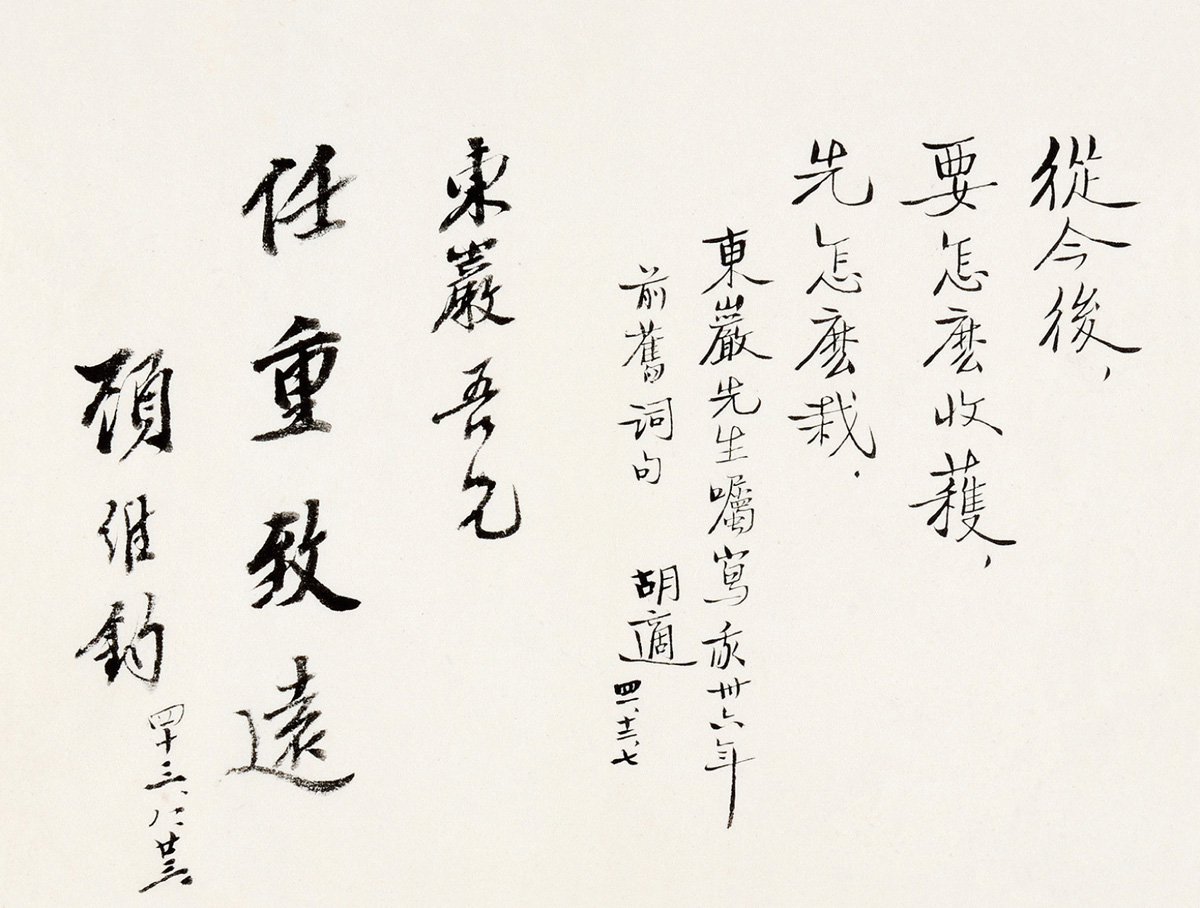 從今後，
要怎麽收穫，
先怎麽栽．
東巖先生囑寫我卅六年
前舊詞句
胡適
四一、十二、七
東巖吾兄
任重致遠
顧維鈞
四十三、八、廿三、